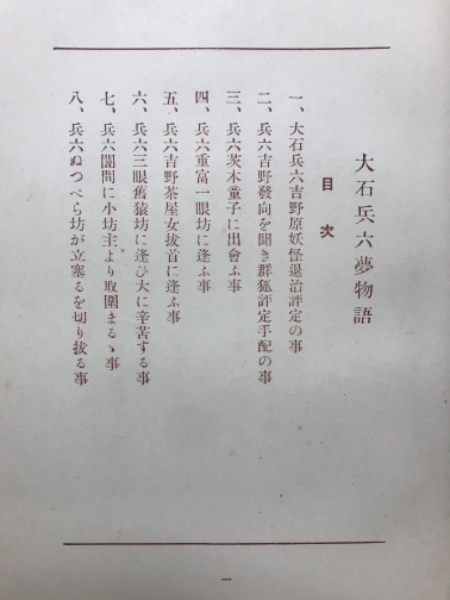 大石兵六夢物語
目次
一、大石兵六吉野原妖怪退治評定の事
二、兵六吉野發向を聞き群狐評定手配の事
三、兵六茨木童子に出會ふ事
四、兵六重富一眼坊に逢ふ事
五、兵六吉野茶屋女拔首に逢ふ事
六、兵六三眼舊猿坊に逢ひ大に辛苦する事
七、兵六闇間に小坊主より取圍まるゝ事
八、兵六ぬつぺら坊が立塞るを切り拔る事
一